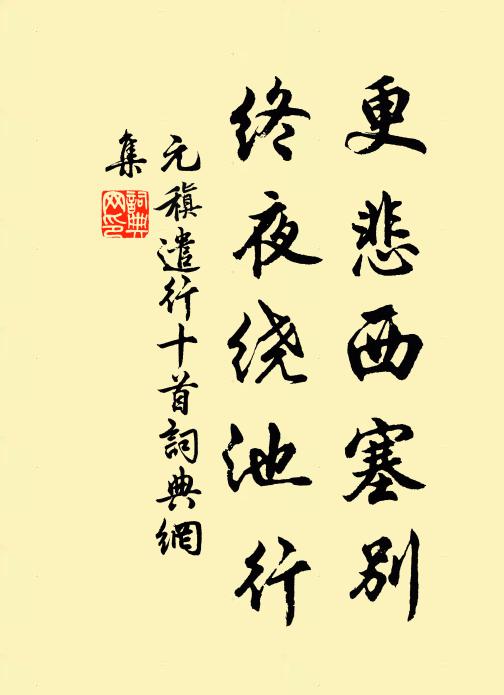 更悲西塞别
终夜绕池行
元稹遣行十首詞典網
集
詞典
网印